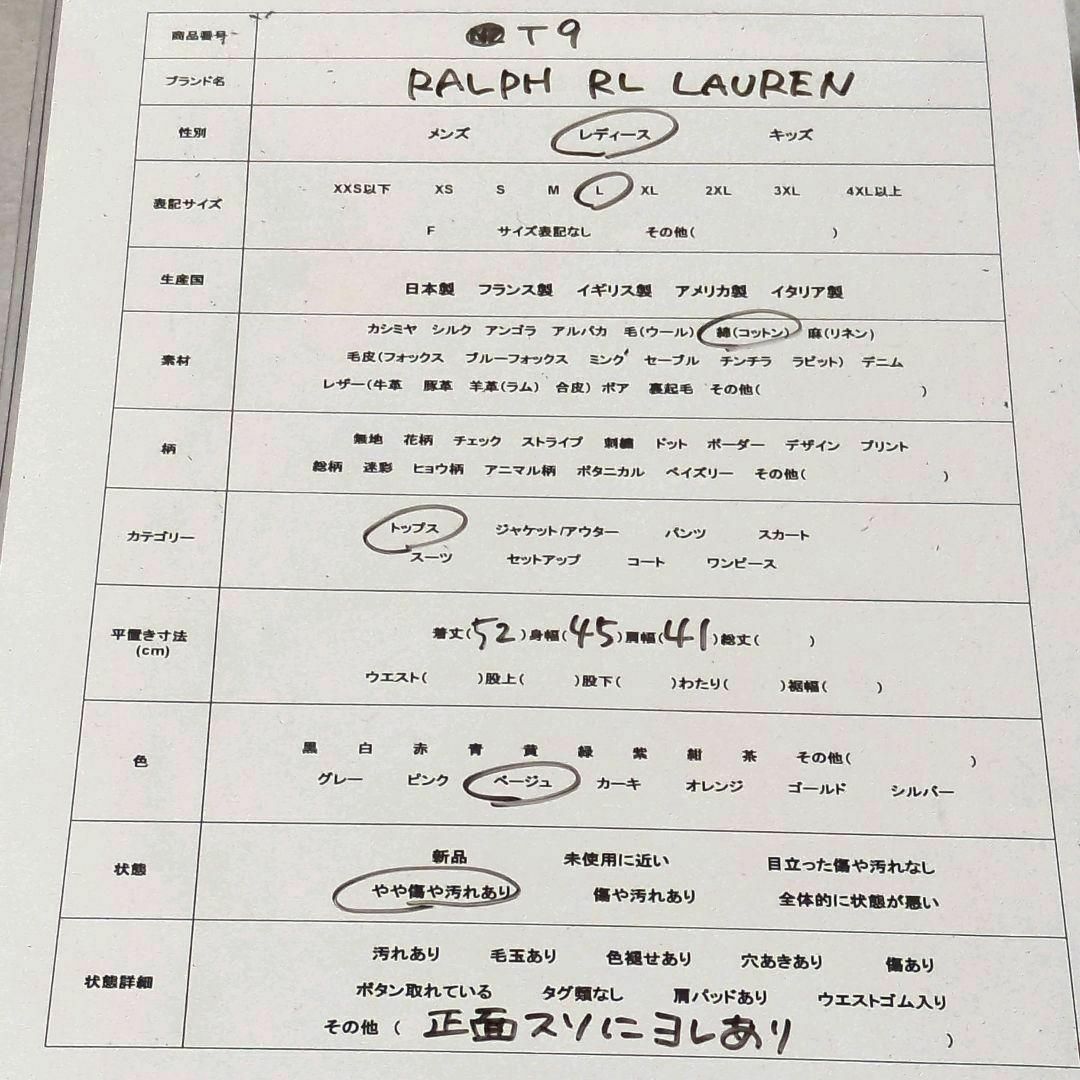 商品番号 T9
ブランド名 RALPH RL LAUREN
性別 メンズ レディース キッズ
表記サイズ XXS以下 XS S M L XL 2XL 3XL 4XL以上
F サイズ表記なし その他( )
生産国 日本製 フランス製 イギリス製 アメリカ製 イタリア製
素材 カシミヤ シルク アンゴラ アルパカ 毛(ウール) 綿(コットン) 麻(リネン)
毛皮(フォックス ブルーフォックス ミンク セーブル チンチラ ラビット) デニム
レザー(牛革 豚革 羊革(ラム) 合皮) ボア 裏起毛 その他( )
柄 無地 花柄 チェック ストライプ 刺繍 ドット ボーダー デザイン プリント
総柄 迷彩 ヒョウ柄 アニマル柄 ボタニカル ペイズリー その他( )
カテゴリー トップス ジャケット/アウター パンツ スカート
スーツ セットアップ コート ワンピース
平置き寸法 (cm) 着丈(52)身幅(45)肩幅(41)総丈( )
ウエスト( )股上( )股下( )わたり( )裾幅( )
色 黒 白 赤 青 黄 緑 紫 紺 茶 その他( )
グレー ピンク ベージュ カーキ オレンジ ゴールド シルバー
状態 新品 未使用に近い 目立った傷や汚れなし
やや傷や汚れあり 傷や汚れあり 全体的に状態が悪い
状態詳細 汚れあり 毛玉あり 色褪せあり 穴あきあり 傷あり
ボタン取れている タグ類なし 肩パッドあり ウエストゴム入り
その他 ( 正面スソにヨレあり )